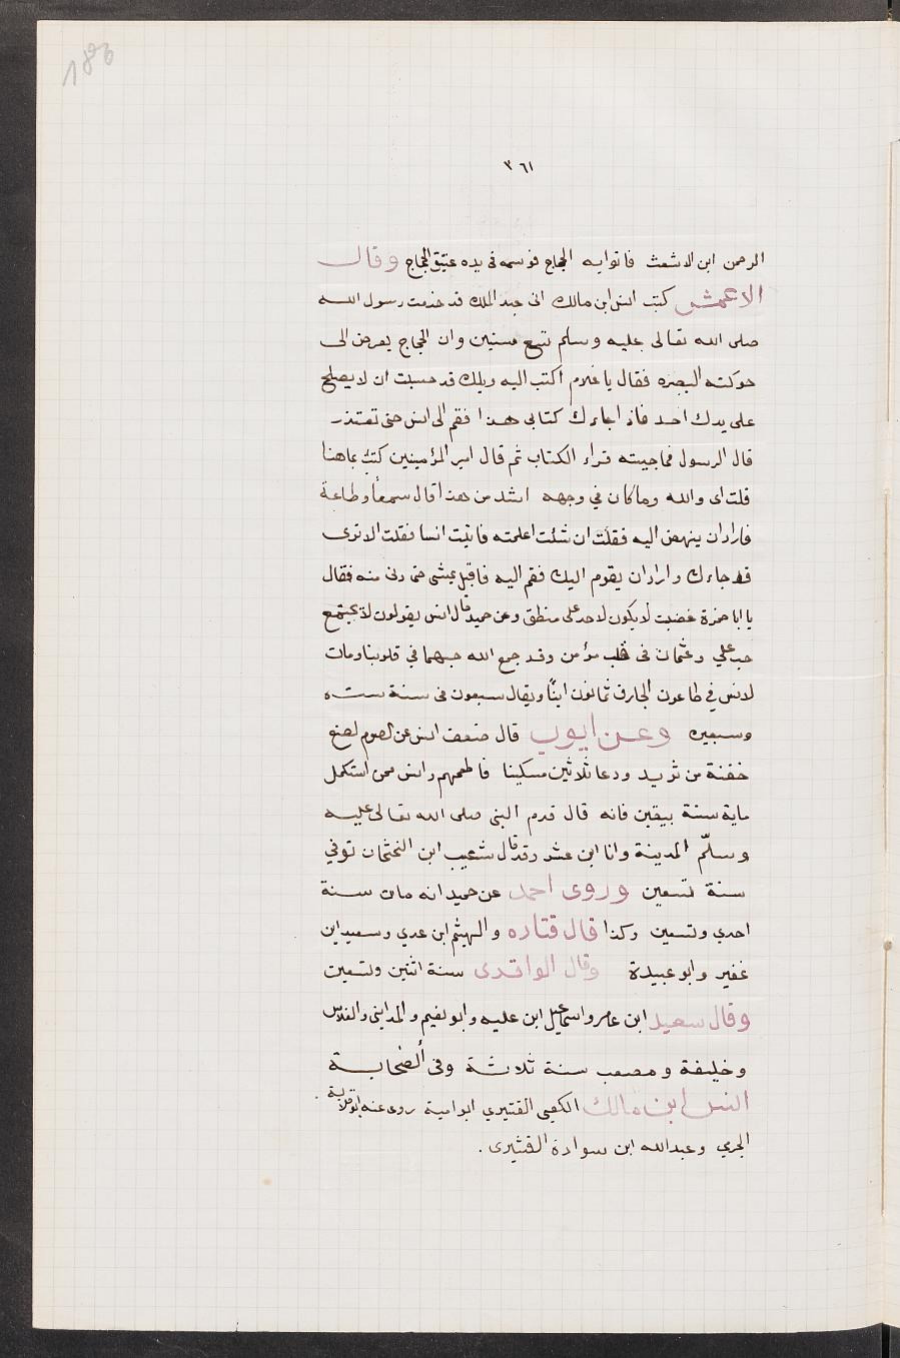 186
٣٦١
الرحمن ابن الاشعث فاتوابه الحجاج فوسمه فى يده عتيق الحجاج وقال
الاعمش كتب انس ابن مالك الى عبد الملك قد خدمت رسول الله
صلى الله تعالى عليه وسلم تسع سنين وان الحجاج يعرض الى
حوكته البصره فقال يا غلام اكتب اليه ويلك قد حسبت ان لا يصلح
على يدك احد فاذا جاءك كتابى هذا فقم الى انس حتى تعتذر
قال الرسول فما جيته قراء الكتاب ثم قال امير المؤمينين كتب بماهنا
قلت اى والله وما كان في وجهه اشد من هذا قال سمعاً وطاعة
فارادان ينهض اليه فقلت ان شئت اعلمته فاتيت انسا فقلت الا ترى
قد جاءك وارادان يقوم اليك فقم اليه فاقبل يمشى حتى دنى منه فقال
يا ابا حمزة غضبت لا يكون لاحد على منطق وعن حميد قال انس يقولون لا يجتمع
حب علي وعثمان فى قلب مؤمن وقد جمع الله حبهما في قلوبنا ومات
لانس في طاعون الجارف ثمانون ابنًا ويقال سبعون فى سنة سته
وسبعين وعن ايوب قال ضعف انس عن الصوم لصنع
خفنة من ثريد ودعا ثلاثين مسكينا فاطعمهم وانس ممن استكمل
ماية سنة بيقين فانه قال قدم النبى صلى الله تعالى عليه
وسلّم المدينة وانا ابن عشر وقد قال شعيب ابن النحثمان توفي
سنة تسعين وروى احمد عن حميد انه مات سنة
احدي وتسعين وكذا قال قتاده والهيثم ابن عدي وسعيد ابن
غفير وابو عبيدة وقال الواقدى سنة اثنين وتسعين
وقال سعيد ابن عامر واسماعيل ابن عليه وابو نعيم والمداينى والفلاس
وخليفة ومصعب سنة ثلاثة وفى الضحابة
انس ابن مالك الكعبى القتيري ابو امية روى عنه ابو قلابة
الجري وعبد الله ابن سوادة القشيرى .